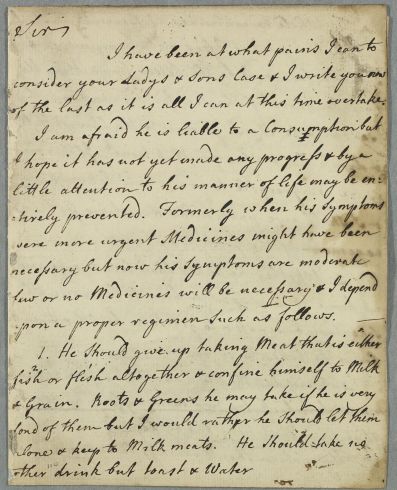 Sir
I have been at what pains I can to
consider your Ladys & Sons Case & I write you now
of the last as it is all I can at this time overtake.
I am afraid he is liable to a Consumption but
I hope it has not yet made any progress & by a
little attention to his manner of life may be en-
-tirely prevented. Formerly when his Symptoms
were more urgent Medicines might have been
necessary but now his Symptoms are moderate
few or no Medicines will be necessary & I depend
upon a proper regimen such as follows.
1. He should give up taking Meat that is either
fish or flesh altogether & confine himself to Milk
& Grain. Roots & Greens he may take if he is very
fond of them but I would rather he should let them
alone & keep to Milk meats. He Should take no
other drink but toast & Water